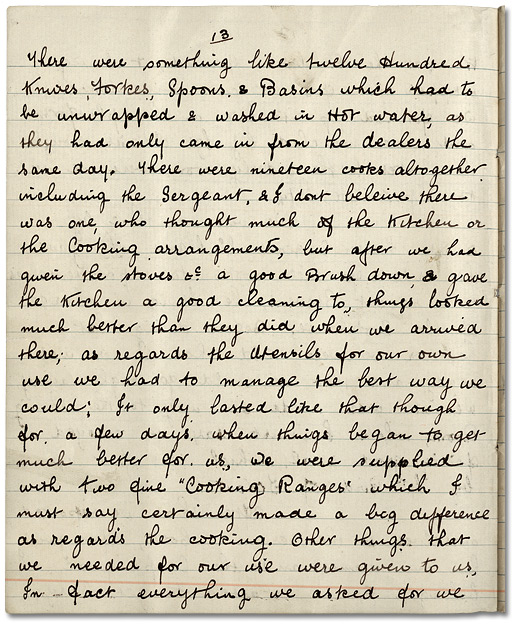 13
There were something like twelve Hundred
Knives, Forkes, Spoons, & Basins which had to
be unwrapped & washed in Hot water, as
they had only came in from the dealers the
same day. There were nineteen cooks altogether
including the Sergeant, & I dont beleive there
was one, who thought much of the Kitchen or
the Cooking arrangements, but after we had
given the stoves &c a good Brush down, & gave
the Kitchen a good cleaning to, things looked
much better than they did when we arrived
there; as regards the Utensils for our own
use we had to manage the best way we
could; It only lasted like that though
for a few days, when things began to get
much better for us, we were supplied
with two fine "Cooking Ranges" which I
must say certainly made a big difference
as regards the cooking. Other things that
we needed for our use were given to us,
In fact everything we asked for we